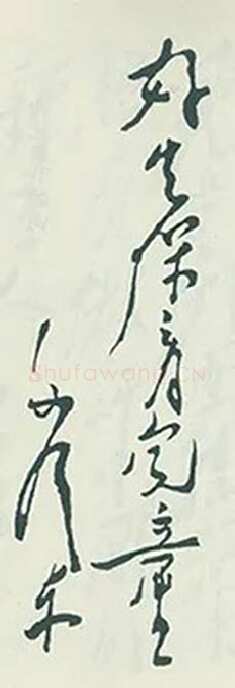 好生保育兒童
毛澤東
Shufawang.CN